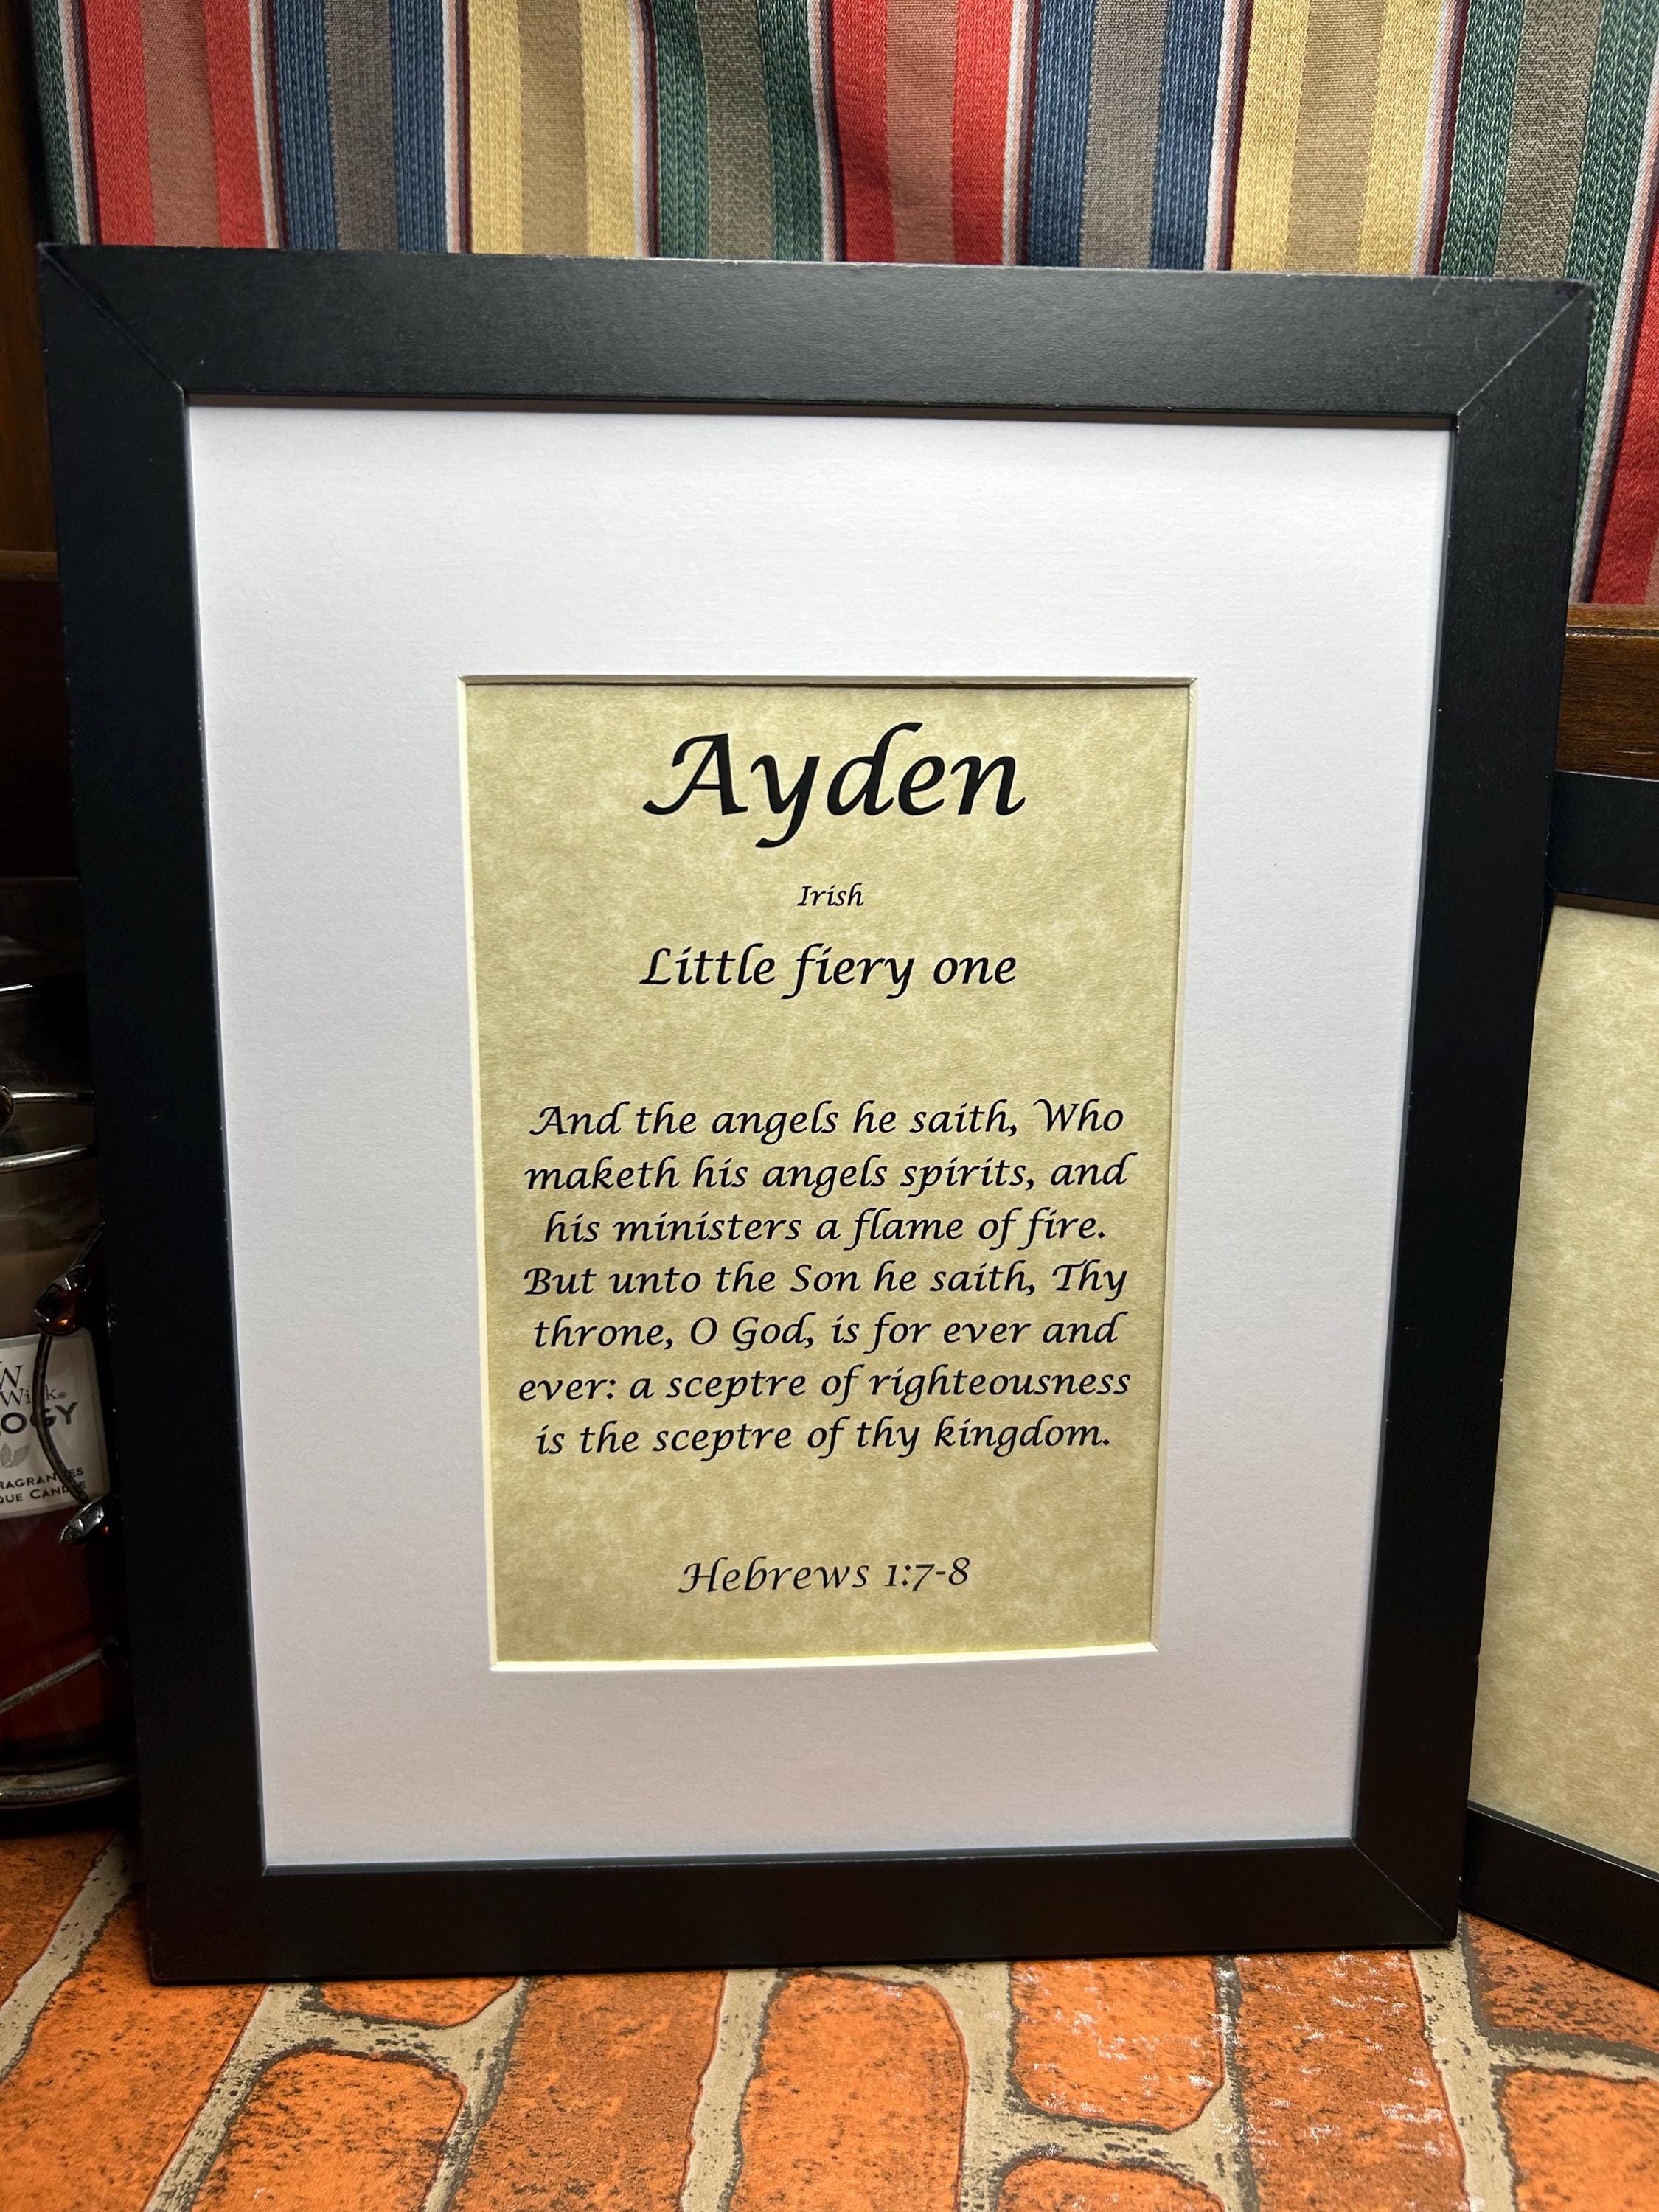 Ayden
Irish
Little fiery one
And the angels he saith, Who
maketh his angels spirits, and
his ministers a flame of fire.
But unto the Son he saith, Thy
throne, O God, is for ever and
ever: a sceptre of righteousness
is the sceptre of thy kingdom.
Hebrews 1:7-8
W
OGY